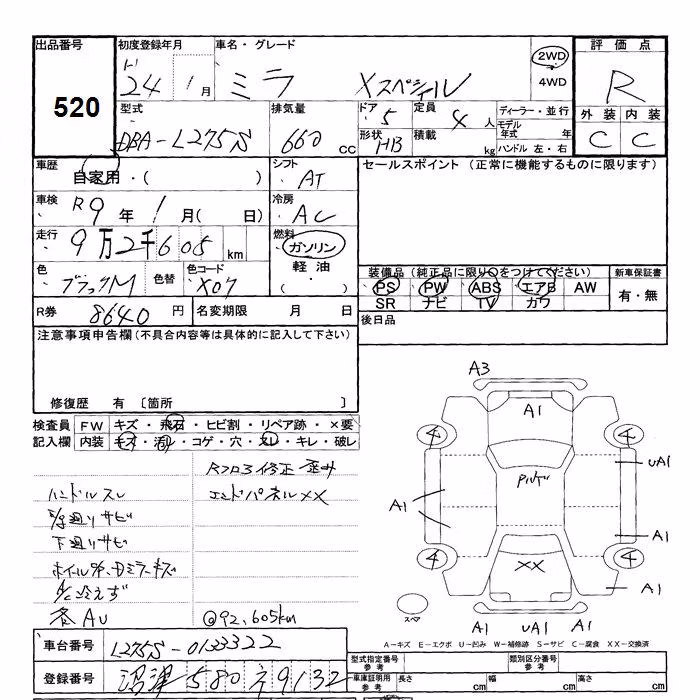 出品番号
520
初度登録年月
24 1月
車名・グレード
ミラ Xスペシャル
2WD
4WD
評価点
R
外装 内装
C C
型式
DBA-L275S
排気量
660 cc
ドア 5
定員 4人
形状 HB
積載 kg
ディーラー・並行
モデル年式 年
ハンドル 左・右
車歴
自家用・( )
シフト
AT
セールスポイント(正常に機能するものに限ります)
車検
R9年 1月( 日)
冷房
AC
走行
9万2千605km
燃料
ガソリン
軽油
( )
色
ブラックM
色替
色コード
X07
装備品(純正品に限り○をつけてください)
PS PW ABS エアB AW
SR ナビ TV カワ
新車保証書
有・無
R券 8640円
名変期限 月 日
後日品
注意事項申告欄(不具合内容等は具体的に記入して下さい)
修復歴 有 〔箇所 〕
検査員記入欄
FW キズ・飛石・ヒビ割・リペア跡・×要
内装 キズ・汚レ・コゲ・穴・スレ・キレ・破レ
ハンドルスレ
下廻りサビ
エンドパネルXX
各AU
@92,605km
A3
A1
4
4
UA1
Pルーフ
A1
A1
4
4
XX
A1
スペア
A1 UA1 A1
A-キズ E-エクボ U-凹み W-補修跡 S-サビ C-腐食 XX-交換済
車台番号
L275S-0133322
登録番号
沼津 580 そ 9132
型式指定番号
参考
類別区分番号
参考
車庫証明用
参考
長さ cm
幅 cm
高さ cm